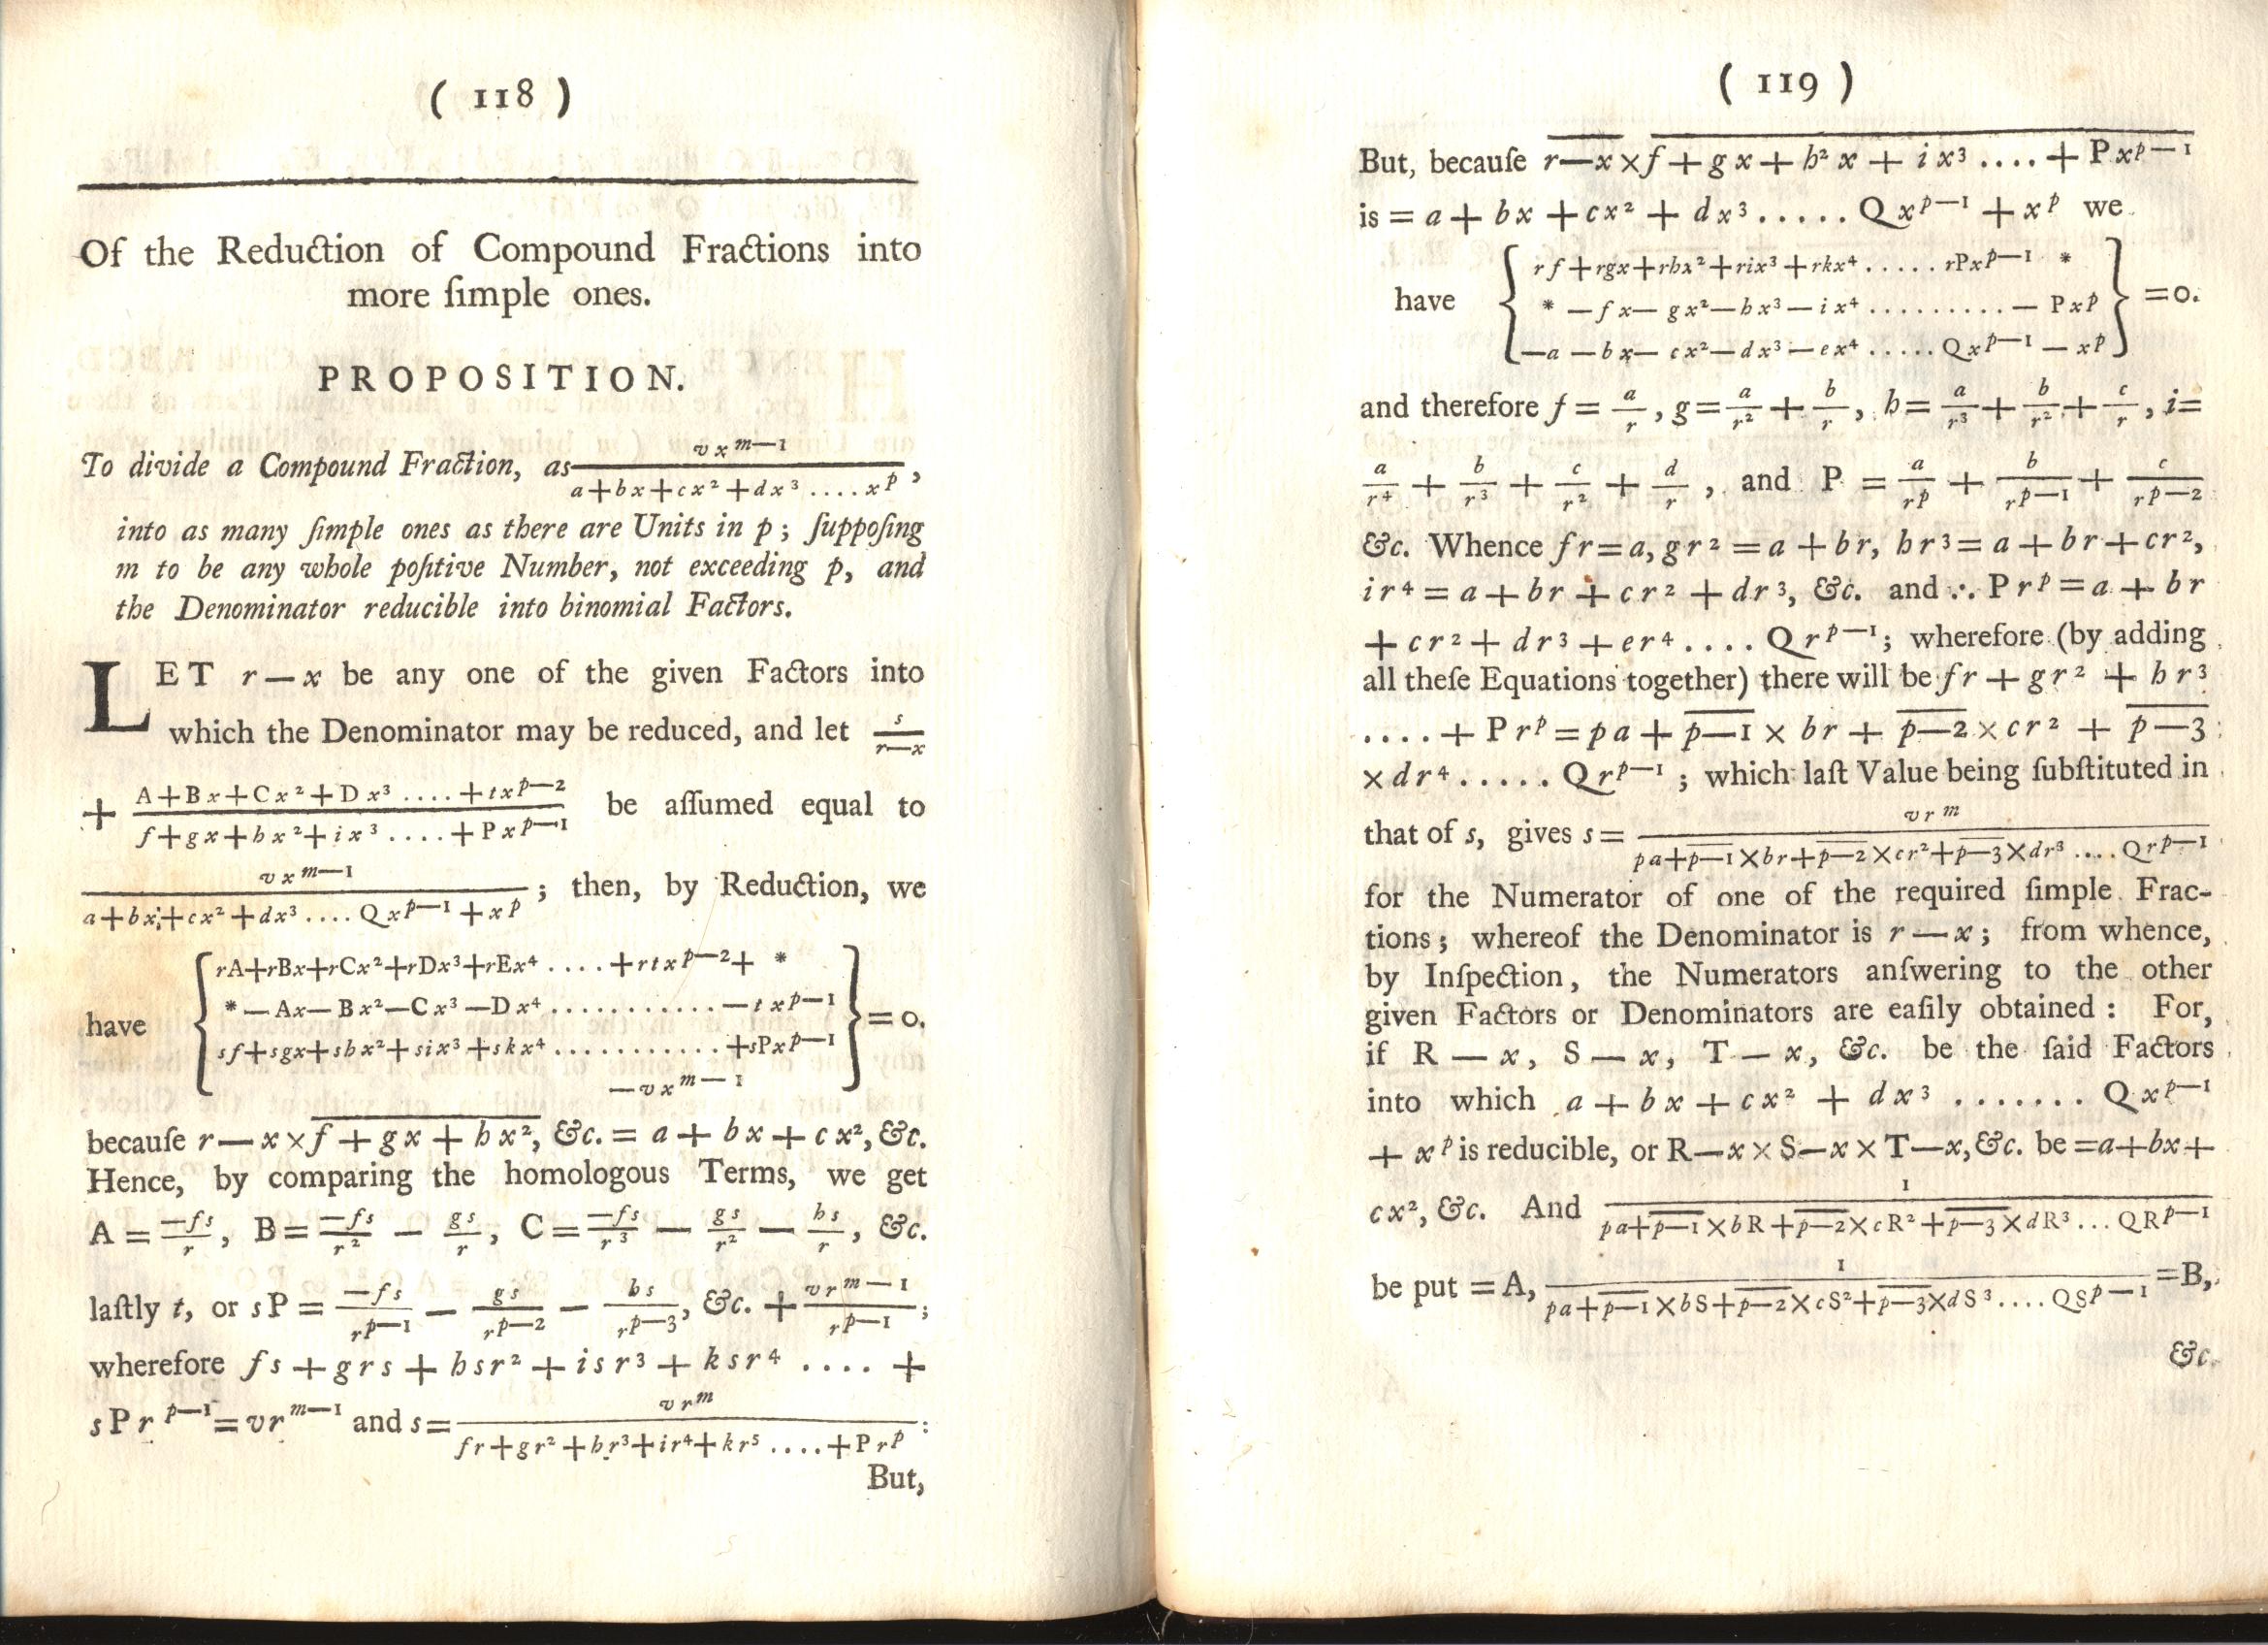 ( 118 )
Of the Reduction of Compound Fractions into
more ſimple ones.
PROPOSITION.
To divide a Compound Fraction, as \frac{v x^{m—1}}{a+bx+cx²+dx³ .... x^p},
into as many ſimple ones as there are Units in p; ſuppoſing
m to be any whole poſitive Number, not exceeding p, and
the Denominator reducible into binomial Factors.
LET r — x be any one of the given Factors into
which the Denominator may be reduced, and let \frac{s}{r—x}
+ \frac{A+Bx+Cx²+Dx³ .... +tx^{p—2}}{f+gx+hx²+ix³ .... +Px^{p—1}} be aſſumed equal to
\frac{v x^{m—1}}{a+bx+cx²+dx³ .... Qx^{p—1}+x^p}; then, by Reduction, we
have { rA+rBx+rCx²+rDx³+rEx⁴ .... +rtx^{p—2}+ *
* — Ax— Bx²—Cx³ —Dx⁴ ............ —tx^{p—1}
sf+sgx+shx²+six³+skx⁴ ............ +sPx^{p—1}
—vx^{m—1} } = 0.
becauſe r — x × \overline{f + gx + hx²}, &c. = a + bx + cx², &c.
Hence, by comparing the homologous Terms, we get
A = \frac{—fs}{r}, B = \frac{—fs}{r²} — \frac{gs}{r}, C = \frac{—fs}{r³} — \frac{gs}{r²} — \frac{hs}{r}, &c.
laſtly t, or sP = \frac{—fs}{r^{p—1}} — \frac{gs}{r^{p—2}} — \frac{hs}{r^{p—3}}, &c. + \frac{vr^{m—1}}{r^{p—1}};
wherefore fs + grs + hsr² + isr³ + ksr⁴ .... +
sPr^{p—1} = vr^{m—1} and s = \frac{vr^m}{fr+gr²+hr³+ir⁴+kr⁵ .... +Pr^p}:
But,
( 119 )
But, becauſe \overline{r—x} × \overline{f + gx + h²x + ix³ .... + Px^{p—1}}
is = a + bx + cx² + dx³ ..... Qx^{p—1} + x^p we
have { rf+rgx+rhx²+rix³+rkx⁴ ..... rPx^{p—1} *
* —fx— gx²—hx³—ix⁴ .......... — Px^p
—a —bx— cx²—dx³—ex⁴ ..... Qx^{p—1} — x^p } = 0.
and therefore f = \frac{a}{r}, g = \frac{a}{r²} + \frac{b}{r}, h = \frac{a}{r³} + \frac{b}{r²} + \frac{c}{r}, i =
\frac{a}{r⁴} + \frac{b}{r³} + \frac{c}{r²} + \frac{d}{r}, and P = \frac{a}{r^p} + \frac{b}{r^{p—1}} + \frac{c}{r^{p—2}}
&c. Whence fr = a, gr² = a + br, hr³ = a + br + cr²,
ir⁴ = a + br + cr² + dr³, &c. and ∴ Pr^p = a + br
+ cr² + dr³ + er⁴ .... Qr^{p—1}; wherefore (by adding
all theſe Equations together) there will be fr + gr² + hr³
.... + Pr^p = pa + \overline{p—1} × br + \overline{p—2} × cr² + \overline{p—3}
× dr⁴ ..... Qr^{p—1}; which laſt Value being ſubſtituted in
that of s, gives s = \frac{vr^m}{pa+\overline{p—1}×br+\overline{p—2}×cr²+\overline{p—3}×dr³ .... Qr^{p—1}}
for the Numerator of one of the required ſimple Frac-
tions; whereof the Denominator is r — x; from whence,
by Inſpection, the Numerators anſwering to the other
given Factors or Denominators are eaſily obtained: For,
if R — x, S — x, T — x, &c. be the ſaid Factors
into which a + bx + cx² + dx³ ....... Qx^{p—1}
+ x^p is reducible, or R—x × S—x × T—x, &c. be = a+bx+
cx², &c. And \frac{1}{pa+\overline{p—1}×bR+\overline{p—2}×cR²+\overline{p—3}×dR³ ... QR^{p—1}}
be put = A, \frac{1}{pa+\overline{p—1}×bS+\overline{p—2}×cS²+\overline{p—3}×dS³ .... QS^{p—1}} = B,
&c.